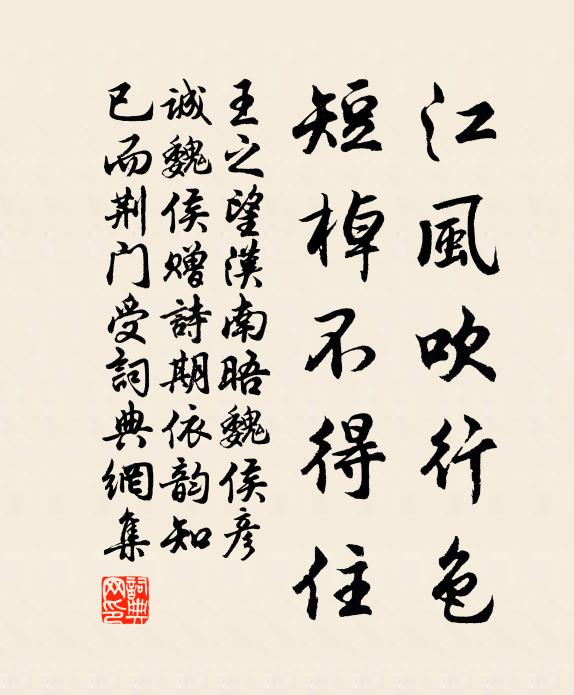 江風吹行色
短棹不得住
王之望漢南晤魏侯彦
誠魏侯贈詩期依韵知
已而荆门受詞典網集
詞典網印